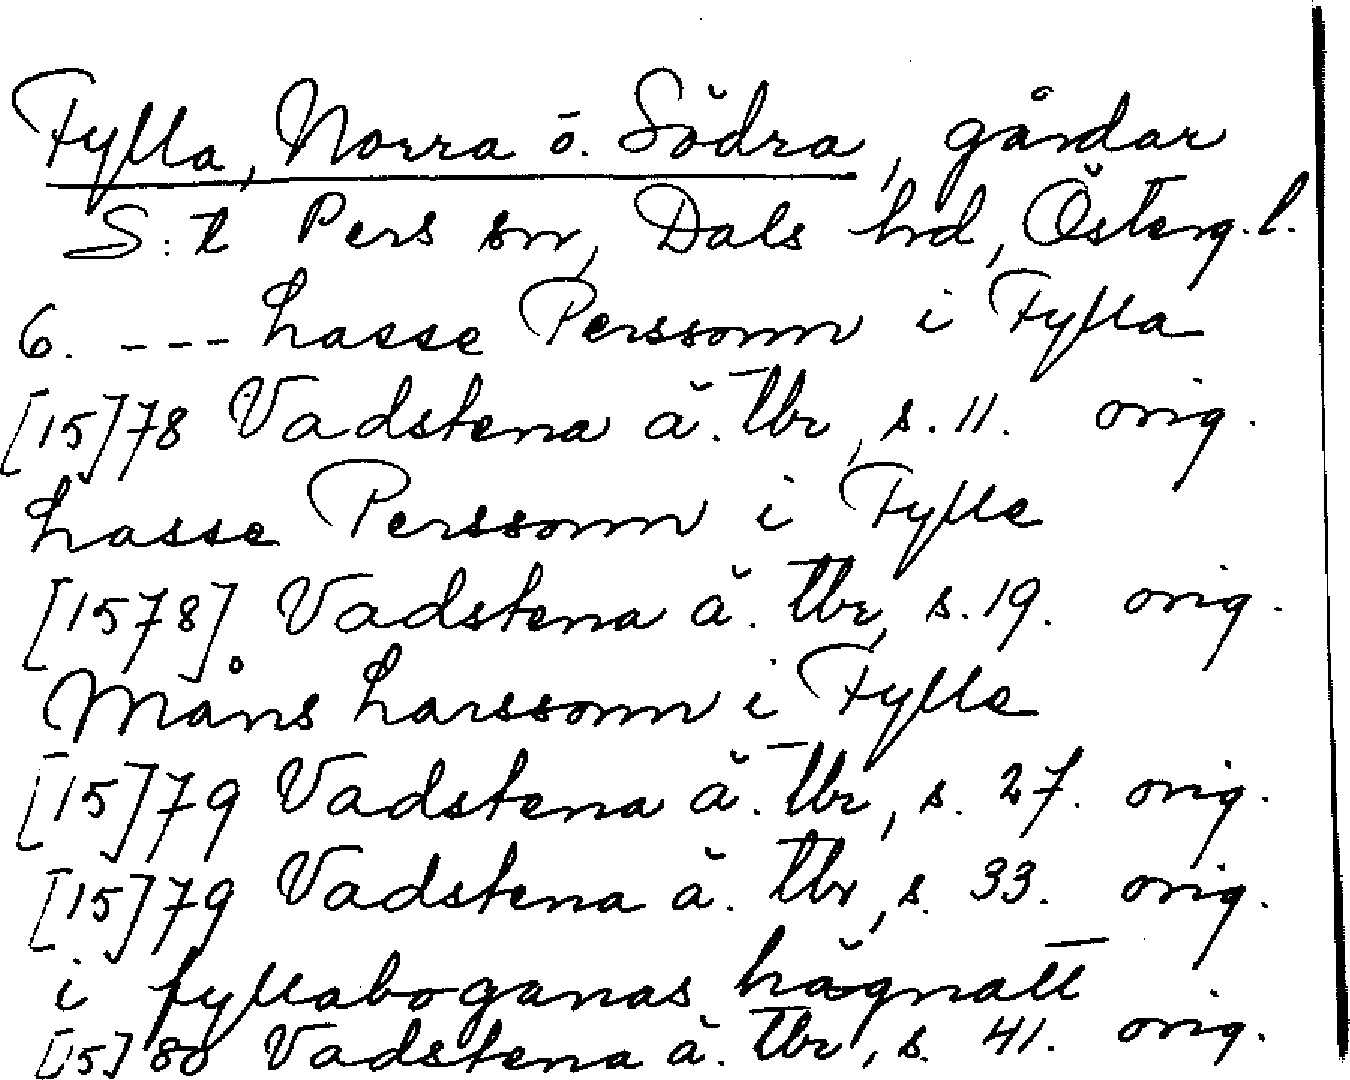 Fylla, Norra o. Södra, gårdar
S:t Pers sn, Dals hrd, Österg.l.
6. --- Lasse Perssonn i Fylla
[15]78 Vadstena ä. tbr, s. 11. orig.
Lasse Perssonn i Fylle
[1578]. Vadstena ä. tbr, s. 19. orig.
Måns Larssonn i Fylle
[15]79 Vadstena ä. tbr, s. 27. orig.
[15]79 Vadstena ä. tbr, s. 33. orig.
i fyllaboganas hägnatt
[15]80 Vadstena ä. tbr, s. 41. orig.